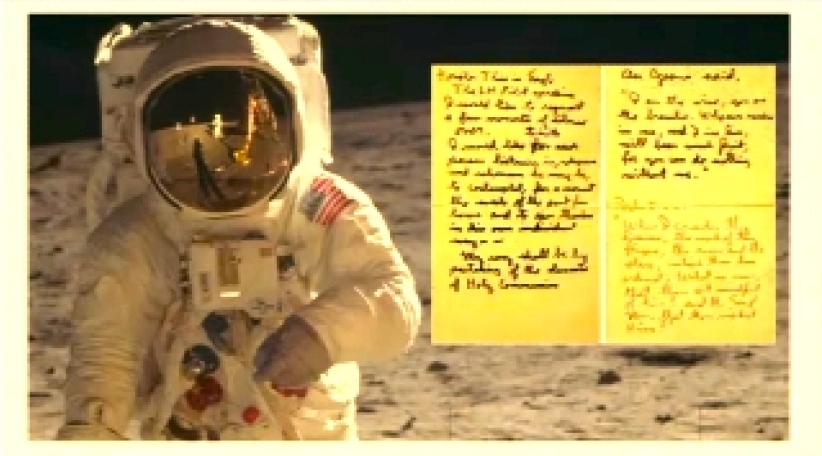 Houston This is Eagle
The LM Pilot speaking
I would like to request
a few moments of silence
over.
I would like for each
person listening in, whoever
and wherever he may be,
to contemplate for a moment
the events of the past few
hours and to give thanks
in his own individual
way - -
My way shall be by
partaking of the elements
of Holy Communion
As Jesus said,
"I am the vine, you are
the branches. Whoever remains
in me, and I in him,
will bear much fruit;
for you can do nothing
without me."
the
the work of
the moon and the
What is man,
that Thou art mindful
of him; and the Son of
Man, that Thou visitest
him